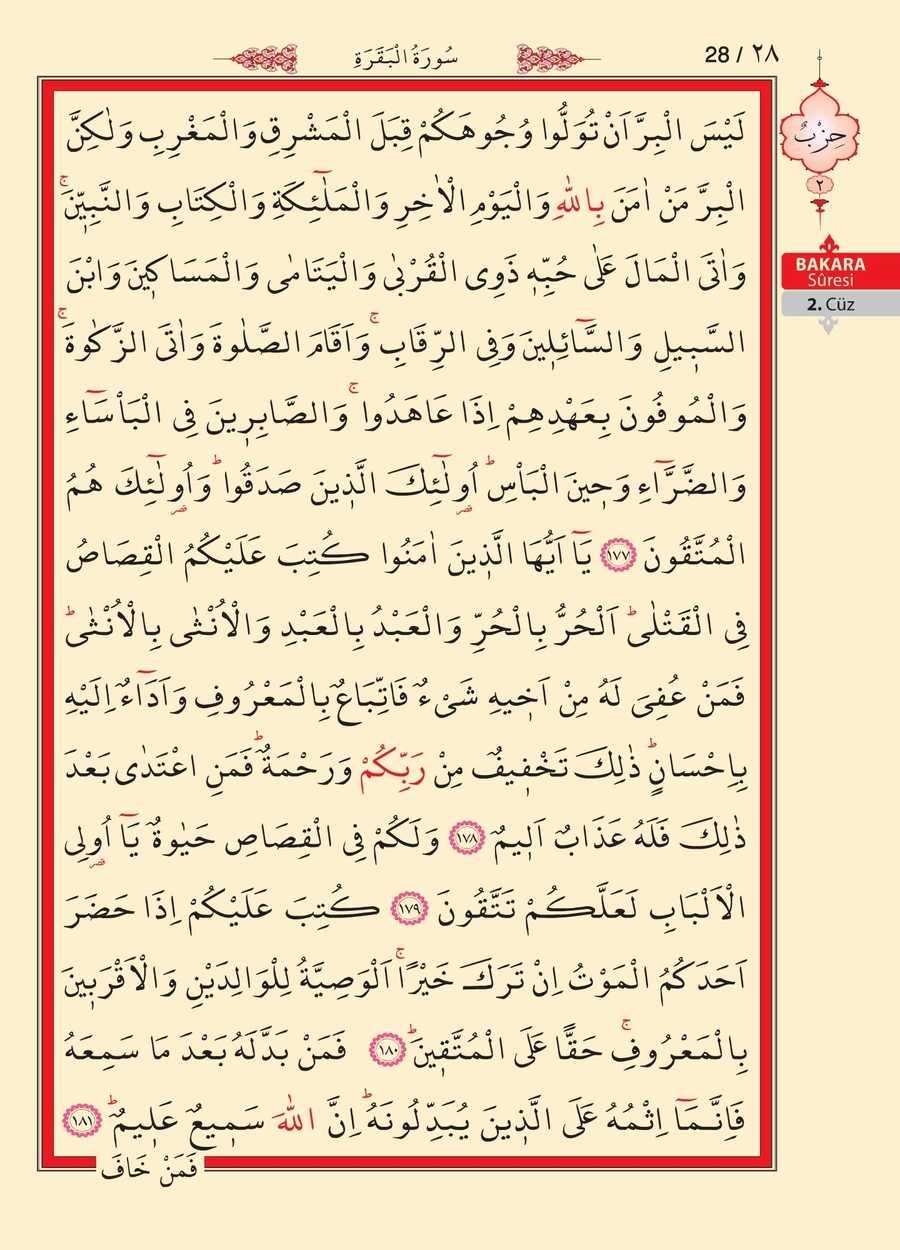 سُورَةُ الْبَقَرَةِ
28 / ٢٨
لَيْسَ الْبِرَّ اَنْ تُوَلُّوا وُجُوهَكُمْ قِبَلَ الْمَشْرِقِ وَالْمَغْرِبِ وَلٰكِنَّ
الْبِرَّ مَنْ اٰمَنَ بِاللّٰهِ وَالْيَوْمِ الْاٰخِرِ وَالْمَلٰٓئِكَةِ وَالْكِتَابِ وَالنَّبِيّ۪نَۚ
وَاٰتَى الْمَالَ عَلٰى حُبِّه۪ ذَوِى الْقُرْبٰى وَالْيَتَامٰى وَالْمَسَاك۪ينَ وَابْنَ
السَّب۪يلِ وَالسَّٓائِل۪ينَ وَفِى الرِّقَابِۚ وَاَقَامَ الصَّلٰوةَ وَاٰتَى الزَّكٰوةَۚ
وَالْمُوفُونَ بِعَهْدِهِمْ اِذَا عَاهَدُواۚ وَالصَّابِر۪ينَ فِى الْبَأْسَٓاءِ
وَالضَّرَّٓاءِ وَح۪ينَ الْبَأْسِۜ اُو۬لٰٓئِكَ الَّذ۪ينَ صَدَقُواۜ وَاُو۬لٰٓئِكَ هُمُ
الْمُتَّقُونَ ١٧٧ يَٓا اَيُّهَا الَّذ۪ينَ اٰمَنُوا كُتِبَ عَلَيْكُمُ الْقِصَاصُ
فِى الْقَتْلٰىۜ اَلْحُرُّ بِالْحُرِّ وَالْعَبْدُ بِالْعَبْدِ وَالْاُنْثٰى بِالْاُنْثٰىۜ
فَمَنْ عُفِىَ لَهُ مِنْ اَخ۪يهِ شَىْءٌ فَاتِّبَاعٌ بِالْمَعْرُوفِ وَاَدَٓاءٌ اِلَيْهِ
بِاِحْسَانٍۜ ذٰلِكَ تَخْف۪يفٌ مِنْ رَبِّكُمْ وَرَحْمَةٌۜ فَمَنِ اعْتَدٰى بَعْدَ
ذٰلِكَ فَلَهُ عَذَابٌ اَل۪يمٌ ١٧٨ وَلَكُمْ فِى الْقِصَاصِ حَيٰوةٌ يَٓا اُو۬لِى
الْاَلْبَابِ لَعَلَّكُمْ تَتَّقُونَ ١٧٩ كُتِبَ عَلَيْكُمْ اِذَا حَضَرَ
اَحَدَكُمُ الْمَوْتُ اِنْ تَرَكَ خَيْرًاۚ اَلْوَصِيَّةُ لِلْوَالِدَيْنِ وَالْاَقْرَب۪ينَ
بِالْمَعْرُوفِۚ حَقًّا عَلَى الْمُتَّق۪ينَۜ ١٨٠ فَمَنْ بَدَّلَهُ بَعْدَ مَا سَمِعَهُ
فَاِنَّمَٓا اِثْمُهُ عَلَى الَّذ۪ينَ يُبَدِّلُونَهُۜ اِنَّ اللّٰهَ سَم۪يعٌ عَل۪يمٌۜ ١٨١
فَمَنْ خَافَ
حِزْبٌ
٢
BAKARA
Sûresi
2. Cüz